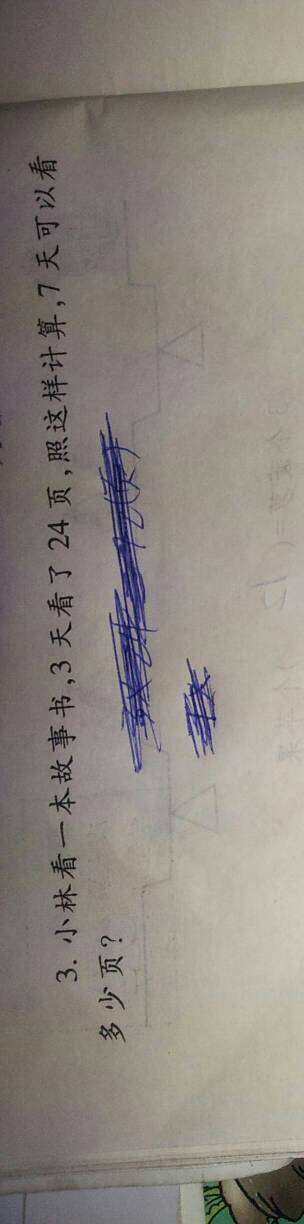 3. 小林看一本故事书,3 天看了 24 页,照这样计算,7 天可以看
多少页?